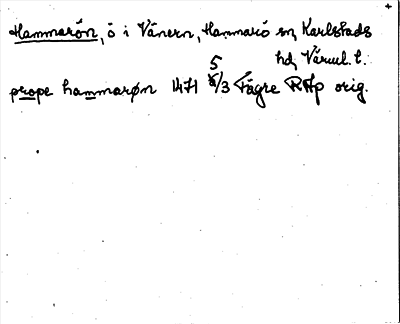 Hammarön, ö i Vänern, Hammarö sn, Karlstads
hd, Värml. l.
prope hammarøn 1471 5/3 Fägre RAp orig.